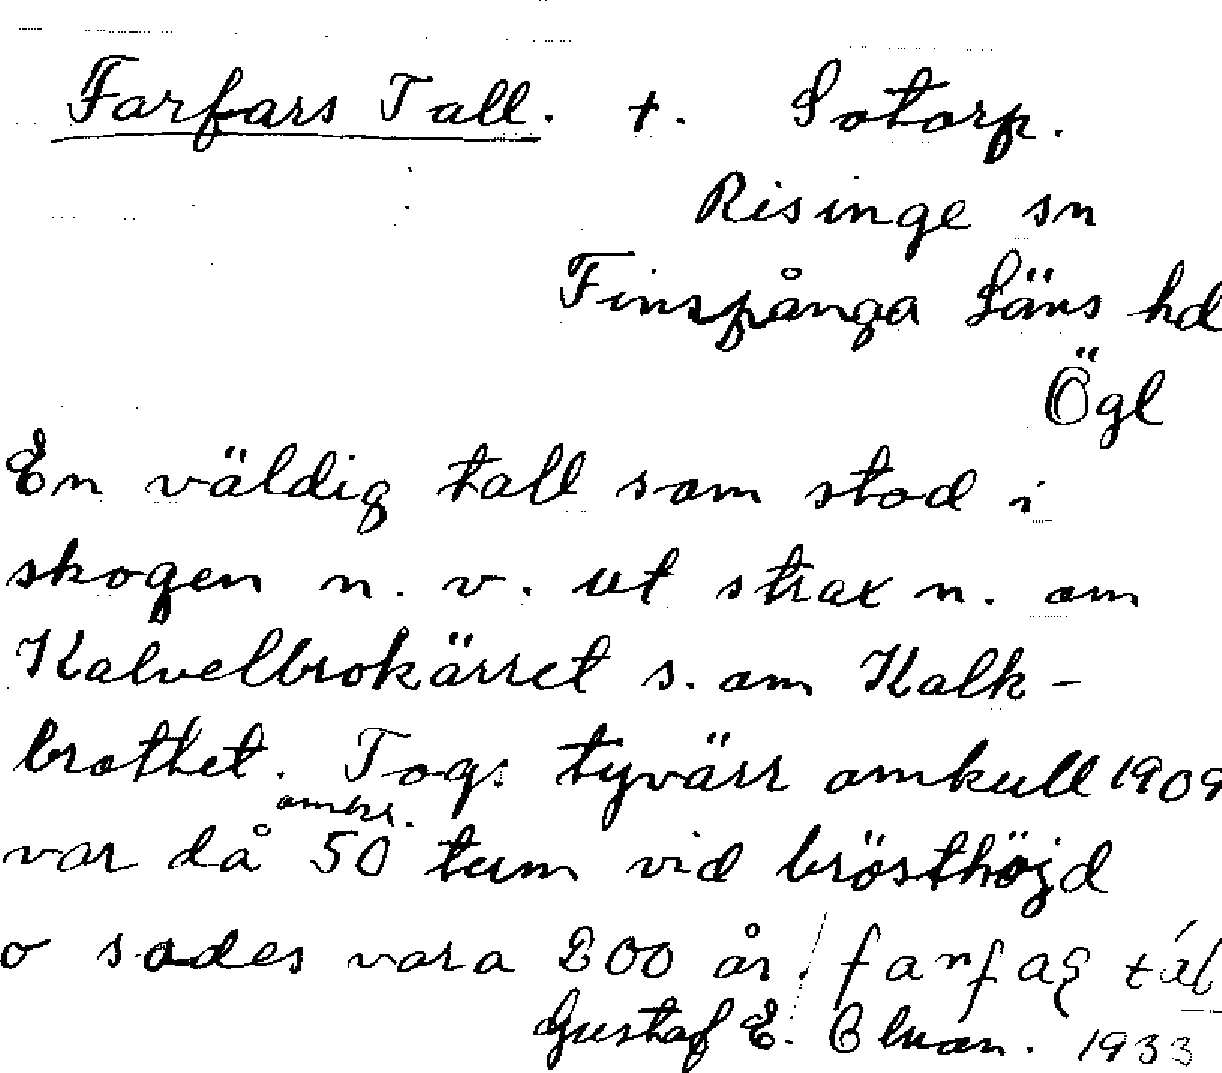 Farfars Tall. +. Sotorp.
Risinge sn
Finspånga Läns hd
Ögl
En väldig tall som stod i
skogen n. v. ut strax n. om
Kalvelbrokärret s. om Kalk-
brottet. Togs tyvärr omkull 1909
omkr.
var då 50 tum vid brösthöjd
o sades vara 200 år. / farfaş tál
Gustaf E. 1933